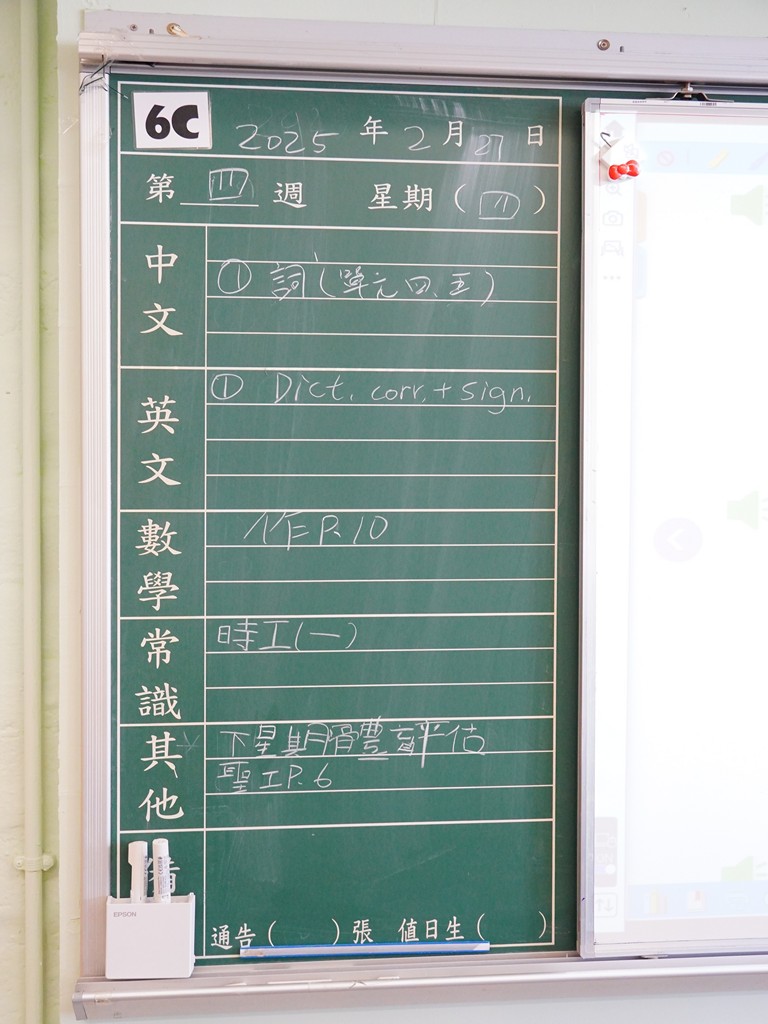 6C 2025年2月27日
第四週 星期(四)
中文
① 詞(單元四、五)
英文
① Dict. corr. + sign.
數學
作P.10
常識
時工(一)
其他
下星期體育評估
聖工P.6
備
EPSON
通告( )張 值日生( )